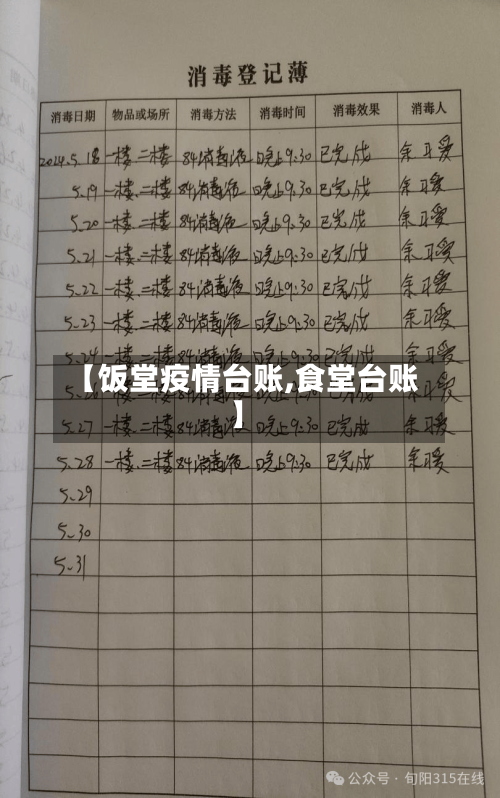 消毒登记薄
消毒日期 物品或场所 消毒方法 消毒时间 消毒效果 消毒人
2024.5.18 一楼.二楼 84消毒液 晚上9:30 已完成
5.19 一楼.二楼 84消毒液 晚上9:30 已完成
5.20 一楼.二楼 84消毒液 晚上9:30 已完成
5.21 一楼.二楼 84消毒液 晚上9:30 已完成
5.22 一楼.二楼 84消毒液 晚上9:30 已完成
5.23 一楼.二楼 84消毒液 晚上9:30 已完成
5.24 一楼.二楼 84消毒液 晚上9:30 已完成
【饭堂疫情台账,食堂台账
】
5.27 一楼.二楼 84消毒液 晚上9:30 已完成
5.28 一楼.二楼 84消毒液 晚上9:30 已完成
5.29
5.30
5.31
公众号 · 旬阳315在线